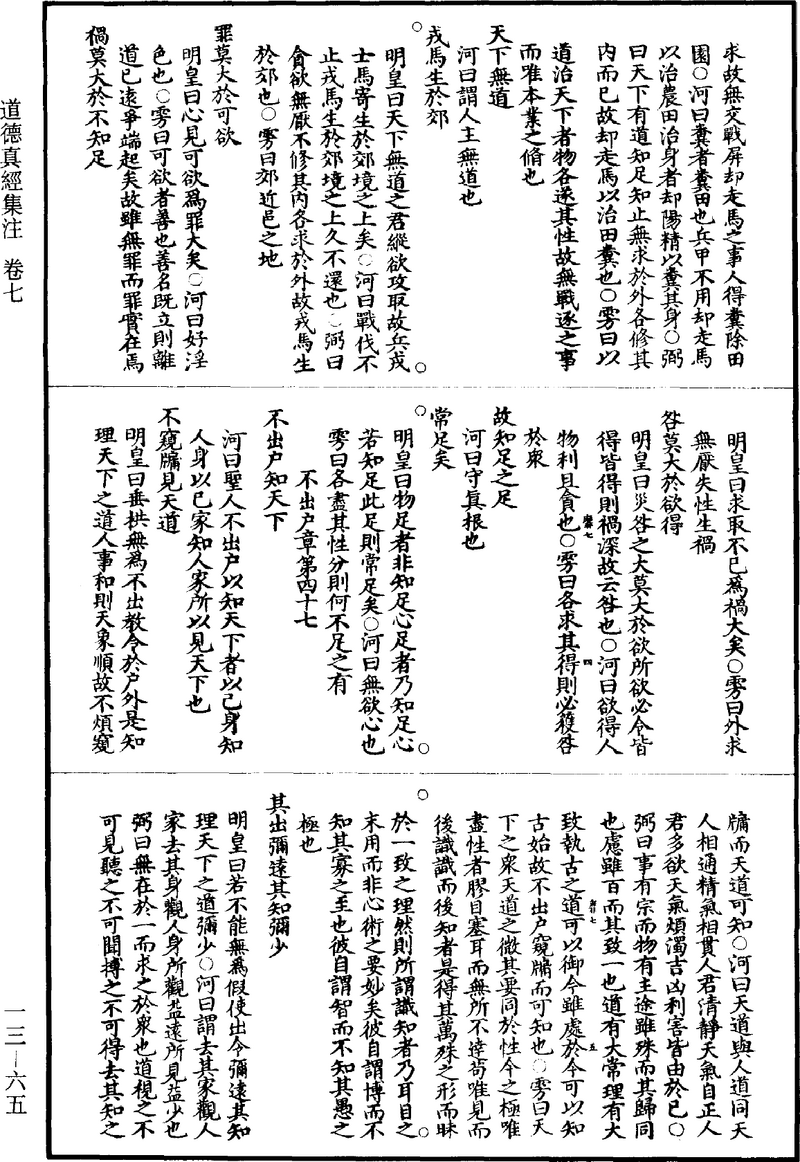 道德真經集注　卷七
求故無交戰屏却走馬之事人得糞除田
園○河曰糞者糞田也兵甲不用却走馬
以治農田治身者却陽精以糞其身○弼
曰天下有道知足知止無求於外各修其
內而已故却走馬以治田糞也○雱曰以
道治天下者物各遂其性故無戰逐之事
而唯本業之脩也
天下無道
河曰謂人主無道也
戎馬生於郊
明皇曰天下無道之君縱欲攻取故兵戎
士馬寄生於郊境之上矣○河曰戰伐不
止戎馬生於郊境之上久不還也○弼曰
貪欲無厭不修其內各求於外故戎馬生
於郊也○雱曰郊近邑之地
罪莫大於可欲
明皇曰心見可欲為罪大矣○河曰好淫
色也○雱曰可欲者善也善名既立則離
道已遠爭端起矣故雖無罪而罪實在焉
禍莫大於不知足
明皇曰求取不已為禍大矣○雱曰外求
無厭失性生禍
咎莫大於欲得
明皇曰災咎之大莫大於欲所欲必令皆
得皆得則禍深故云咎也○河曰欲得人
物利且貪也○雱曰各求其得則必獲咎
於衆
故知足之足
河曰守真根也
常足矣
明皇曰物足者非知足心足者乃知足心
若知足此足則常足矣○河曰無欲心也
雱曰各盡其性分則何不足之有
不出戶章第四十七
不出戶知天下
河曰聖人不出戶以知天下者以己身知
人身以己家知人家所以見天下也
不窺牖見天道
明皇曰垂拱無為不出教令於戶外是知
理天下之道人事和則天象順故不煩窺
牖而天道可知○河曰天道與人道同天
人相通精氣相貫人君清靜天氣自正人
君多欲天氣煩濁吉凶利害皆由於己○
弼曰事有宗而物有主途雖殊而其歸同
也慮雖百而其致一也道有大常理有大
致執古之道可以御今雖處於今可以知
古始故不出戶窺牖而可知也○雱曰天
下之衆天道之微其要同於性今之極唯
盡性者膠目塞耳而無所不達苟唯見而
後識識而後知者是得其萬殊之形而昧
於一致之理然則所謂識知者乃耳目之
末用而非心術之要妙矣彼自謂博而不
知其寡之至也彼自謂智而不知其愚之
極也
其出彌遠其知彌少
明皇曰若不能無為假使出令彌遠其知
理天下之道彌少○河曰謂去其家觀人
家去其身觀人身所觀益遠所見益少也
弼曰無在於一而求之於衆也道視之不
可見聽之不可聞搏之不可得去其知之
一三—六五